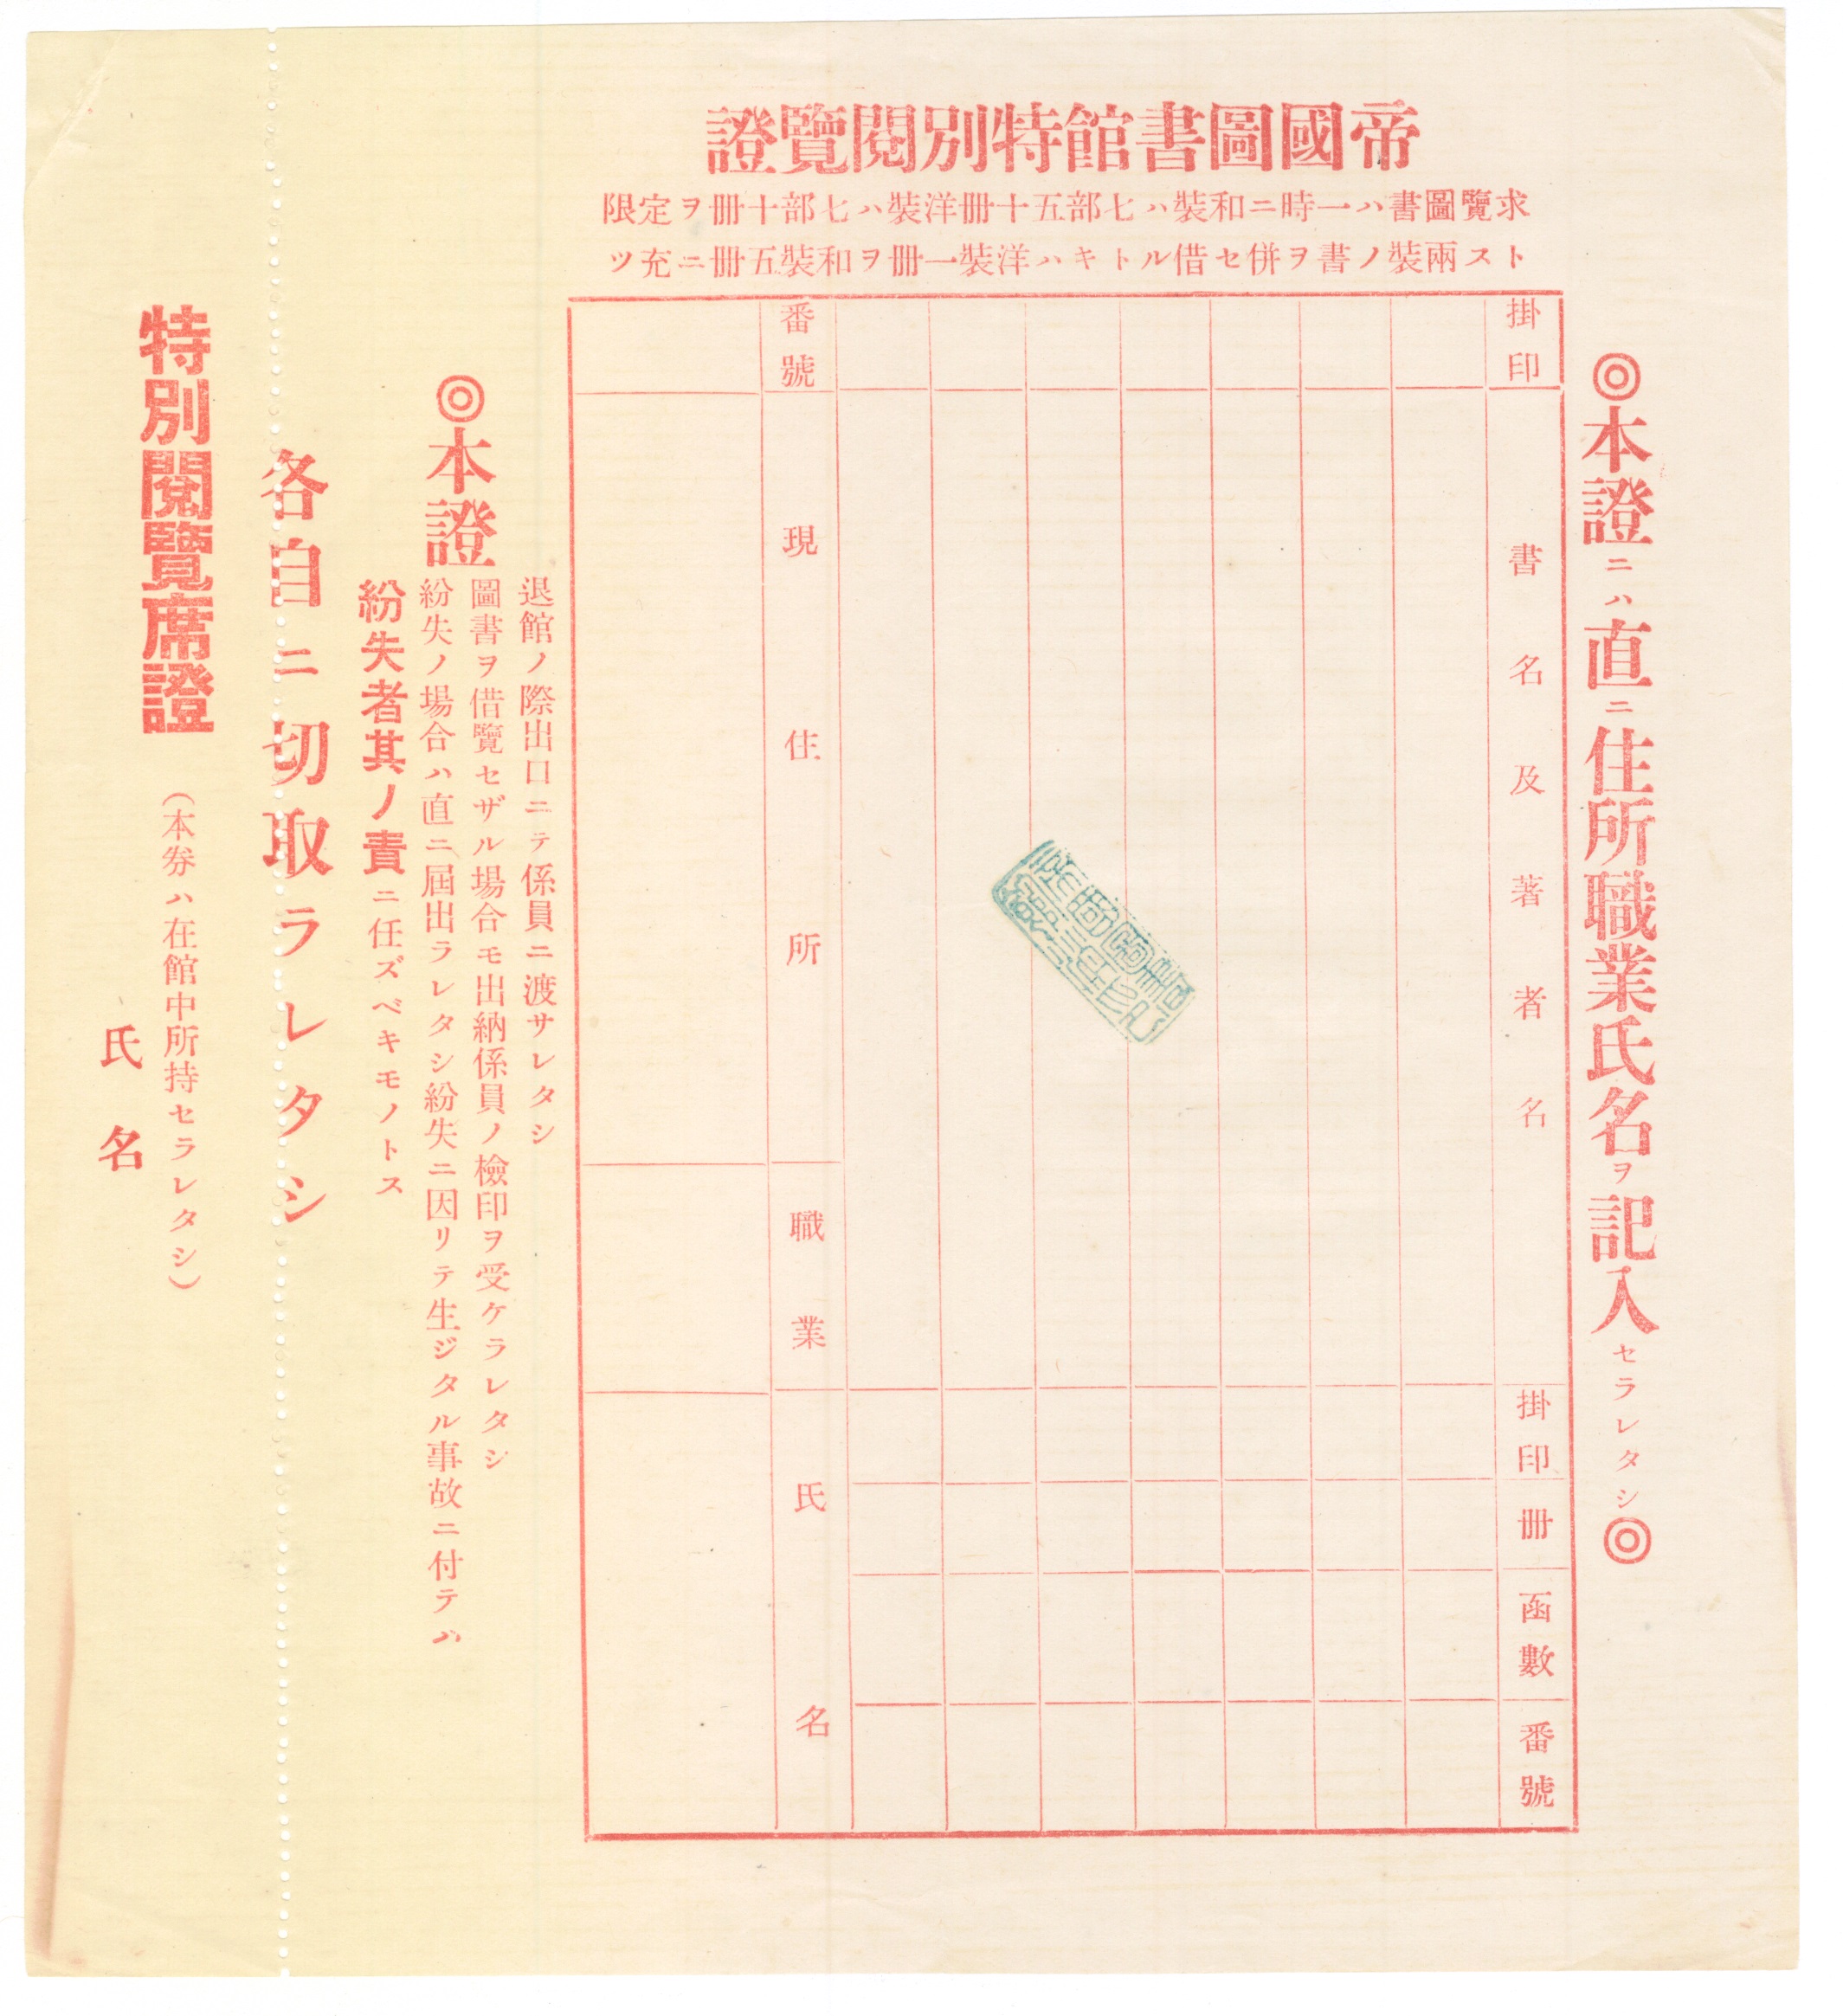 帝國圖書館特別閲覽證
求覽圖書ハ一時ニ和裝ハ七部五十冊洋裝ハ七部十冊ヲ定限
トス兩裝ノ書ヲ併セ借ルトキハ洋裝一冊ヲ和裝五冊ニ充ツ
◎本證ニハ直ニ住所職業氏名ヲ記入セラレタシ◎
掛印
書名及著者名
掛印
冊
函數
番號
番號
現住所
職業
氏名
◎本證
退館ノ際出口ニテ係員ニ渡サレタシ
圖書ヲ借覽セザル場合モ出納係員ノ檢印ヲ受ケラレタシ
紛失ノ場合ハ直ニ屆出ラレタシ紛失ニ因リテ生ジタル事故ニ付テハ
紛失者其ノ責ニ任ズベキモノトス
各自ニ切取ラレタシ
特別閲覽席證
(本券ハ在館中所持セラレタシ)
氏名